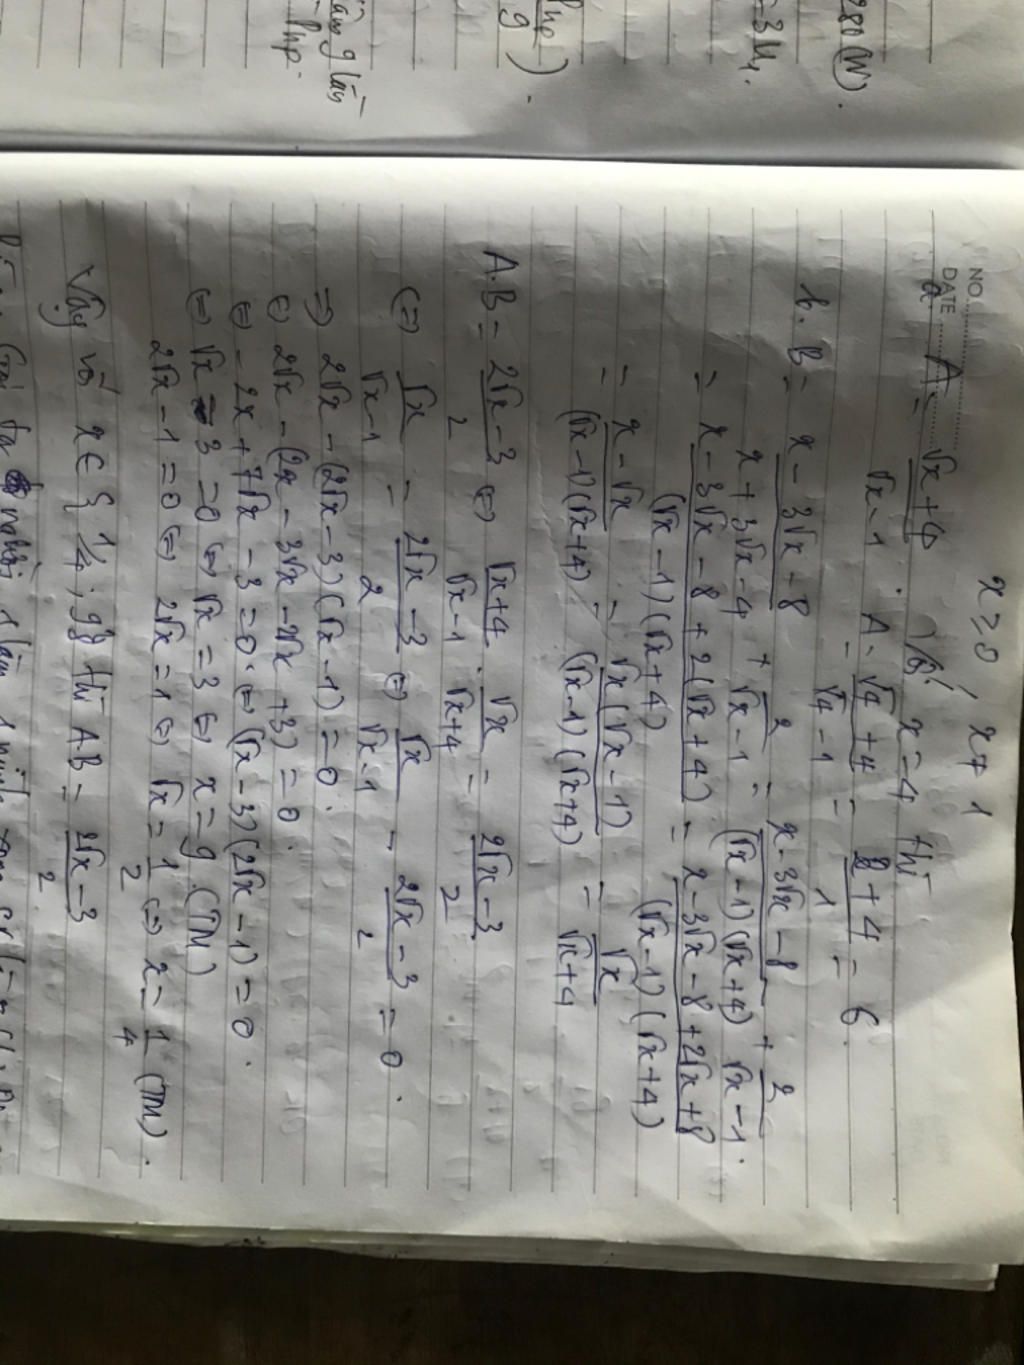 280 (W).
= 3U₁.
9
lần
Php.
NO.
DATE
x ≥ 0, x ≠ 1
a. A = (√x + 4)/(√x - 1). Với x = 4 thì
A = (√4 + 4)/(√4 - 1) = (2 + 4)/1 = 6
b. B = (x - 3√x - 8)/(x + 3√x - 4) + 2/(√x - 1) = (x - 3√x - 8)/((√x - 1)(√x + 4)) + 2/(√x - 1).
= (x - 3√x - 8 + 2(√x + 4))/((√x - 1)(√x + 4)) = (x - 3√x - 8 + 2√x + 8)/((√x - 1)(√x + 4))
= (x - √x)/((√x - 1)(√x + 4)) = (√x(√x - 1))/((√x - 1)(√x + 4)) = √x/(√x + 4)
A.B = (2√x - 3)/2 ⇔ (√x + 4)/(√x - 1) . √x/(√x + 4) = (2√x - 3)/2
⇔ √x/(√x - 1) = (2√x - 3)/2 ⇔ √x/(√x - 1) - (2√x - 3)/2 = 0.
⇒ 2√x - (2√x - 3)(√x - 1) = 0.
⇔ 2√x - (2x - 3√x - 2√x + 3) = 0.
⇔ - 2x + 7√x - 3 = 0. ⇔ (√x - 3)(2√x - 1) = 0.
⇔ √x - 3 = 0 ⇔ √x = 3 ⇔ x = 9 (TM)
2√x - 1 = 0 ⇔ 2√x = 1 ⇔ √x = 1/2 ⇔ x = 1/4 (TM).
Vậy với x ∈ {1/4; 9} thì AB = (2√x - 3)/2